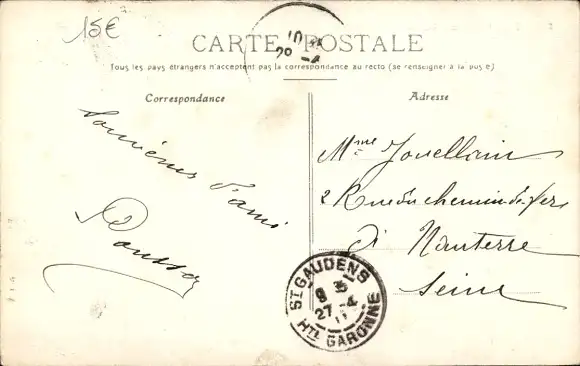 15€
10
29 -4
CARTE POSTALE
Tous les pays étrangers n'acceptent pas la correspondance au recto (se renseigner à la poste)
Correspondance
Adresse
Souvenirs d'ami
Mme Jouellain
2 Rue du chemin de fer
à Nanterre
Seine
ST GAUDENS
9 35
27 -4
11
HTE GARONNE